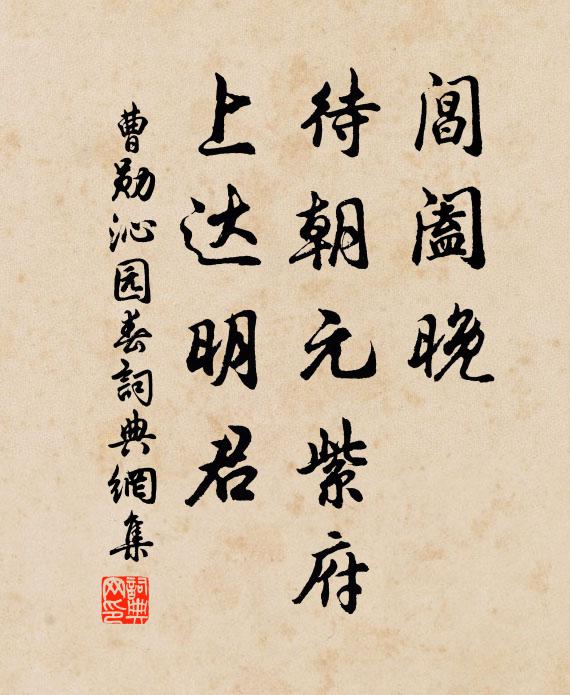 閶阖晚
待朝元紫府
上达明君
曹勋沁园春詞典網集
詞典网印